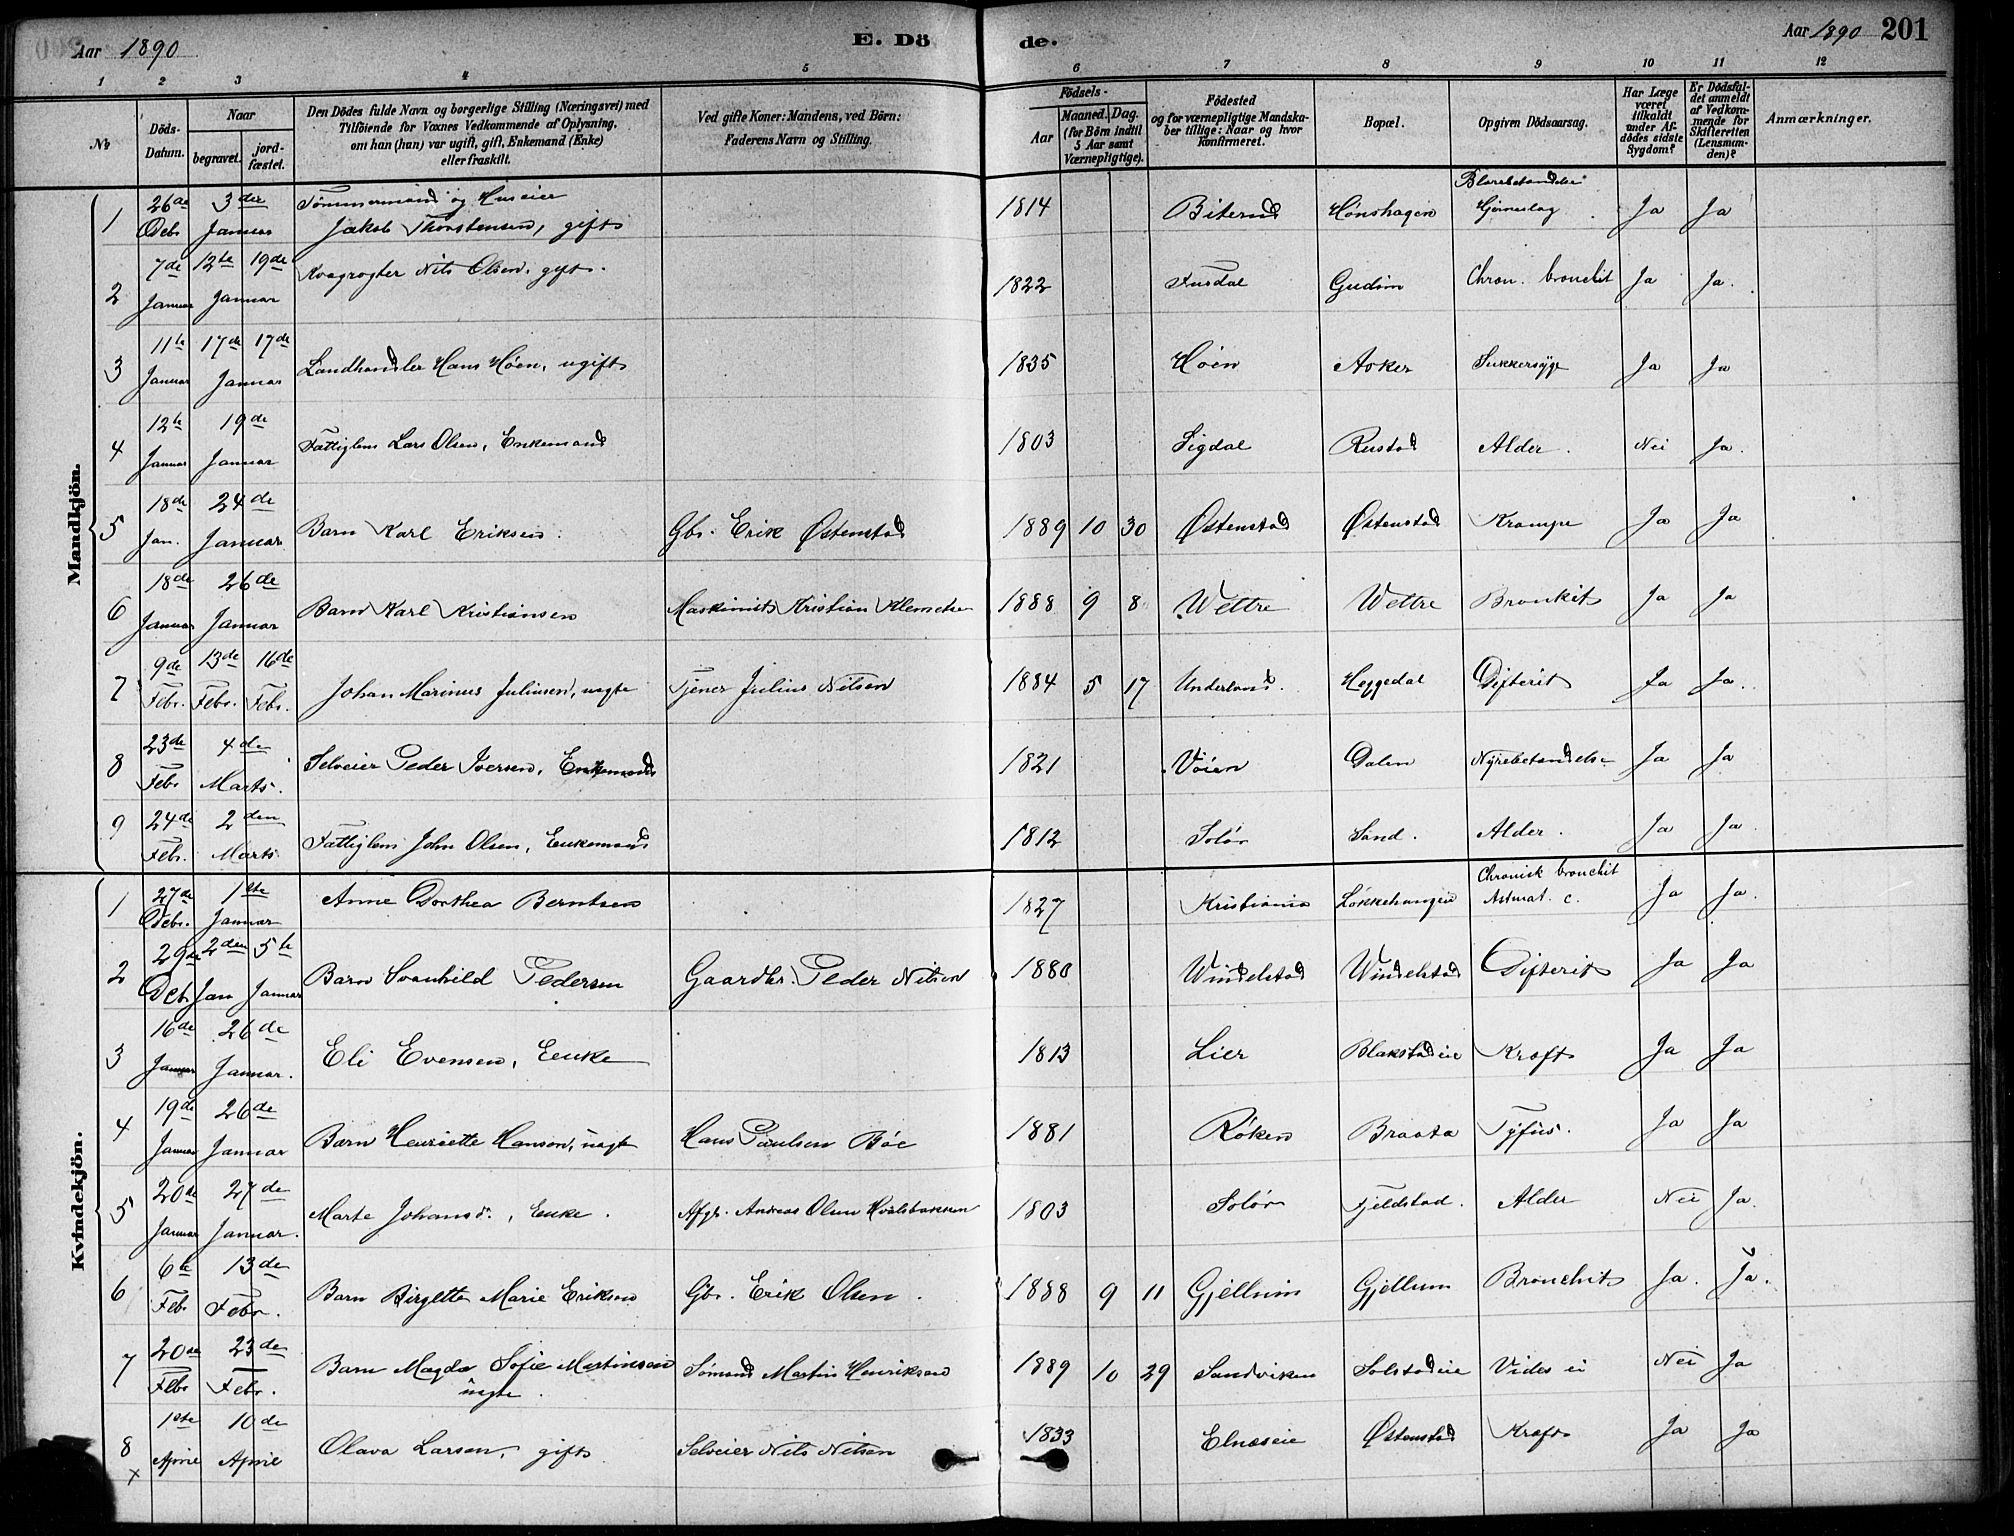 Aar 1890
E. Dö
de.
Aar 1890 201
1 2 3 4 5 6 7 8 9 10 11 12
№
Döds-Datum.
Naar
begravet.
jord-fæstet.
Den Dödes fulde Navn og borgerlige Stilling (Næringsvei) med
Tilföiende for Voxnes Vedkommende af Oplysning,
om han (hun) var ugift, gift, Enkemand (Enke)
eller fraskilt.
Ved gifte Koner: Mandens, ved Börn:
Faderens Navn og Stilling.
Födsels-
Aar
Maaned. Dag.
(for Börn indtil
5 Aar samt
Værnepligtige).
Födested
og for værnepligtige Mandska-
ber tillige: Naar og hvor
konfirmeret.
Bopæl.
Opgiven Dödsaarsag.
Har Læge
været
tilkaldt
under Af-
dödes sidste
Sygdom?
Er Dödsfal-
det anmeldt
af Vedkom-
mende for
Skifteretten
(Lensman-
den)?
Anmærkninger.
Mandkjön.
1 26de Debr 3die Januar Tømmermand og Huseier Jakob Thorstensen, gift 1814 Biterud Hønshagen Hjerneslag Ja Ja
2 7de Januar 12te Januar 19de Nils Olsen, gift. 1822 Gudim Chron. bronchit Ja Ja.
3 11te Januar 17de Januar 17de Landhandler Hans Høen, ugift 1835 Høen Asker Sukkersyge Ja Ja
4 12te Januar 19de Januar Fattiglem Lars Olsen, Enkemand 1803 Sigdal Rustad Alder. Nei Ja.
5 18de Jan. 24de Januar Barn Karl Eriksen. Gbr. Erik Østenstad 1889 10 30 Østenstad Østenstad Krampe Ja Ja
6 18de Januar 26de Januar Barn Karl Kristiansen Maskinist Kristian Klemetsen 1888 9 8 Wettre Wettre Bronkit Ja Ja
7 9de Febr. 13de Febr. 16de Febr. Johan Marinus Juliusen, uægte Tjener Julius Nilsen 1884 5 17 Underland. Heggedal Difterit Ja Ja.
8 23de Febr 4de Marts. Selveier Peder Iversen, Enkemand 1821 Vøien Dalen Nyrebetændelse Ja Ja
9 24de Febr. 2den Marts Fattiglem John Olsen, Enkemand 1812 Solør Sand. Alder. Ja Ja.
Kvindekjön.
1 27de Debr. 1ste Januar Anne Dorthea Berntsen 1827 Kristiania Løkkehaugen Chronisk bronchit Astmat. c. Ja Ja.
2 29de Deb. 2den Jan 5te Januar Barn Svanhild Pedersen Gaardbr. Peder Nilsen 1880 Windelstad Windelstad Difterit Ja Ja
3 16de Januar 26de Januar. Eli Evensen, Enke 1813 Lier Blakstadeie Kræft Ja Ja
4 19de Januar 26de Januar Barn Henriette Hansen, uægte Hans Paulsen Bøe 1881 Røken Braata Tyfus. Ja Ja
5 20de Januar 27de Januar. Marte Johansd., Enke. Afgr. Andreas Olsen Hvalsbakken 1803 Solør Fjeldstad. Alder Nei Ja.
6 6te Febr 13de Febr. Barn Birgette Marie Eriksen Gbr. Erik Olsen. 1888 9 11 Gjellum Gjellum Bronchit Ja. Ja.
7 20de Febr 23de Febr. Barn Magda Sofie Martinsen uægte. Sømand Martin Henriksen 1889 10 29 Sandviken Solstadeie Vides ei Nei Ja
8 x 1ste April 10de April Olava Larsen, gift Selveier Nils Nilsen 1833 Elnæseie Østenstad Kræft Ja Ja